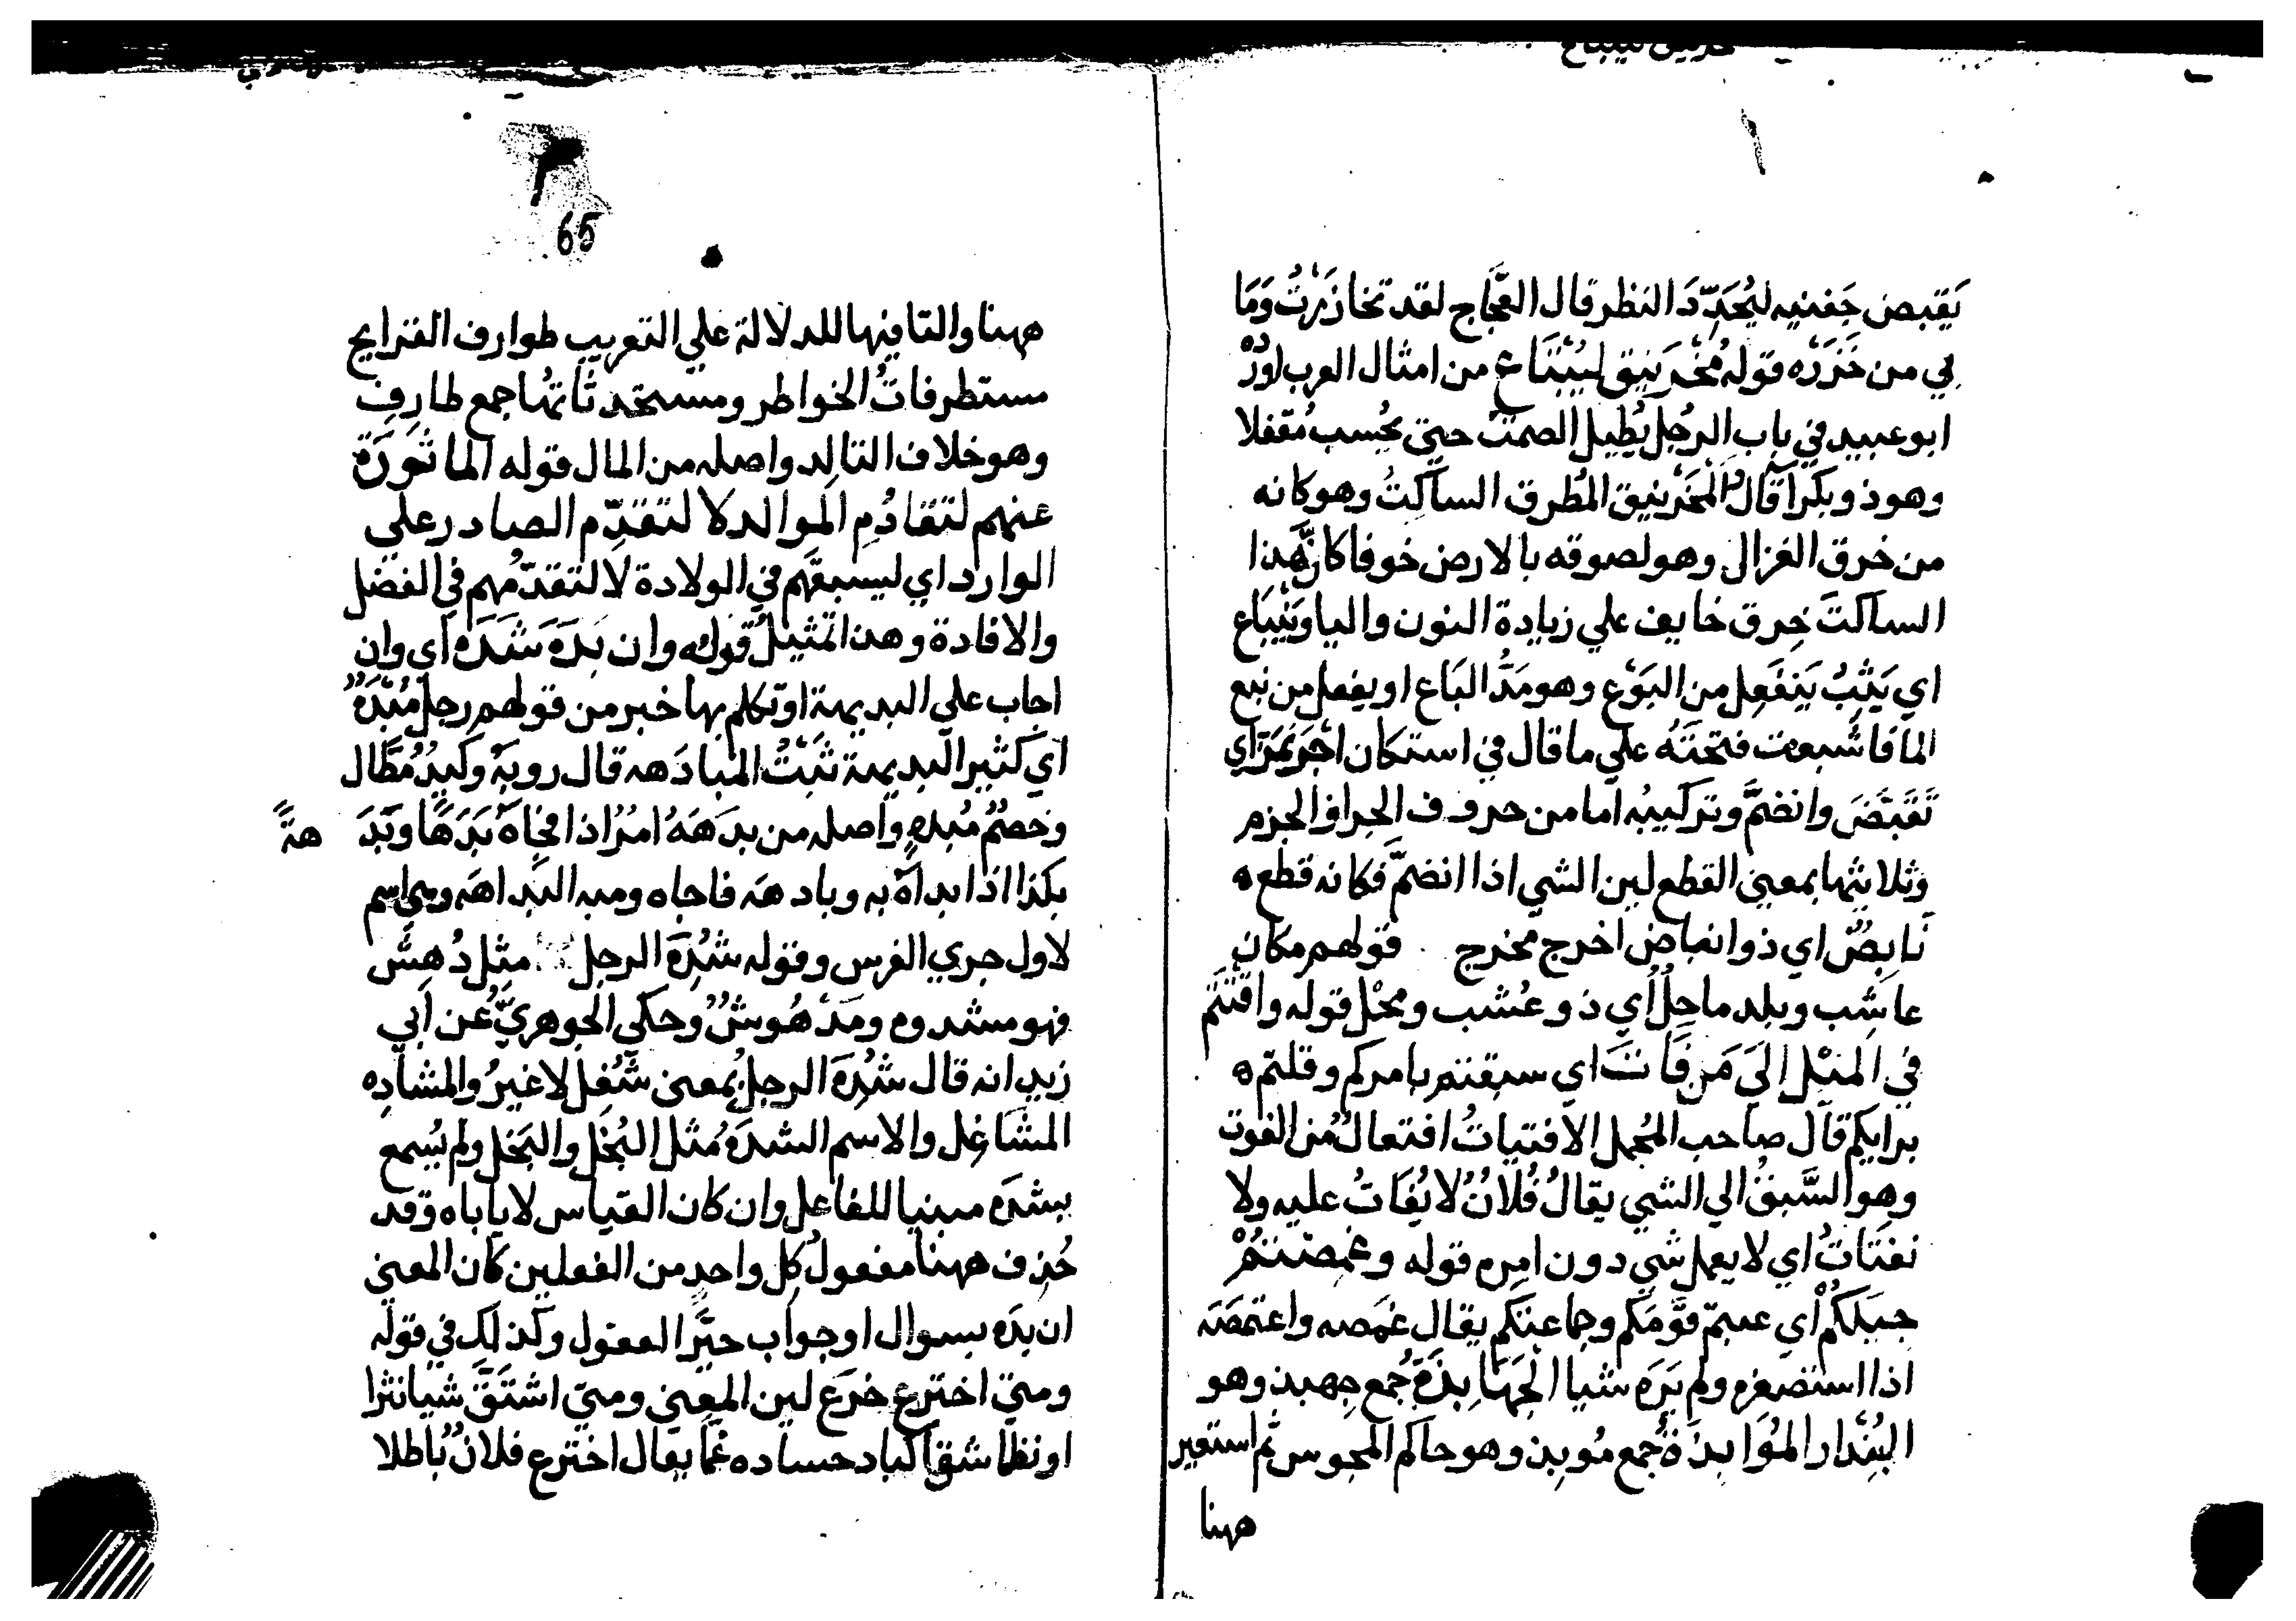 يَقبض جَفنيه ليُحَدِّدَ النظر قال العَجّاج لقد تخازَرْتُ وَمَا
بي من خَزَرْ ه قوله مُخْرَنبِق ليُنْبَاع من امثال العرب اورْده
ابو عبيد في باب الرجُل يُطيل الصمت حتى يُحسب مُغفلا
وهو ذو بكرآ قال المُخْرَنبق المُطرق الساكتُ وهو كانه
من خرق الغزال وهو لصوقه بالارض خوفا كانَّ هذا
الساكتَ خِرق خايف علي زيادة النون واليا وَيَنْبَاع
اي يَثِبُ يَنفَعِل من البَوْع وهو مَدُّ البَاع او يفعل من نبع
الما فاشبعت فتحتَهُ علي ما قال في استكان اجْرَنْمَزَ اي
تَقَبَّضَ وانضمَّ وتركيبُه اما من حروف الجرا والجزم
وثلاثتها بمعنى القطع لين الشي اذا انضمَّ فكانه قطع ه
نَابِضٌ اي ذو انباض اخرج مخرج قولهم مكان
عاشِب وبلد ماحِلٌ اي ذو عُشب ومَحْل قوله وافْتَتُّم
في المثل اليَ مَن فَاتَ اي سبقتم بامركم وقلتم ه
برايكم قال صاحب المُجمل الافتياتُ افتعالٌ من الفوت
وهو السَّبقُ الي الشي يقالُ فُلانٌ لا يُفَاتُ عليه ولا
نفتَاتُ اي لا يعمل شي دون امره قوله وغمِصْتُمْ
جيلكُمْ اي عبتم قَومَكم وجماعتَكم يقال غمَصه واغتمصَه
اذا استصغره ولم يَرَه شيا الجَهَابِذَةُ جمع جِهبذ وهو
البُنْدار المُوَابِذَةُ جمع مُوبِذ وهو حاكم المجوس ثم استعير
ههنا
65
ههنا والتا فيها للدلالة علي التعريب طوارف القرايح
مستطرفاتُ الخواطر ومستحدثاتُها جمع طارِف
وهو خلاف التالِد واصله من المال قوله الماثُورَة
عنهم لتقادُمِ الموالد لا لتقدّم الصادر علي
الوارد اي لسبقهم في الولادة لا لتقدّمُهم في الفضل
والافادة وهذا تمثيلٌ قوله وان بَدَهَ شَدَهَ اي وان
اجاب علي البديهة او تكلم بها خبر من قولهم رجل مُبْدَهٌ
اي كثير البديهة ثَبْتُ المبادَهه قال روبَهْ وكيدُ مُطَّال
وخصمٌ مُبْدِهٍ واصله من بدَهَهُ امرٌ اذا فجاهُ بَدَهًا وبَدَ هةً
بكذا اذا بداهُ به وبادهَه فاجاه ومنه البَداهَه وهي اسم
لاول جري الفرس وقوله شُدِهَ الرجل مثل دُهِشَ
فهو مشدوه ومَدْهُوشٌ وحكى الجوهريُّ عن ابي
زيد انه قال شُدِهَ الرجل بمعنى شُغِل لا غيرُ والمشادِه
المشاغِل والاسم الشدَهُ مثل البُخل والبَخل ولم يُسمع
بشدَه مبنيا للفاعل وان كان القياس لا ياباه وقد
حُذِف ههنا مفعولُ كل واحدٍ من الفعلين كان المعنى
ان بدَه بسوال او جواب حيَّر العقول وكذلك في قوله
ومتى اخترع خرَع لين المعنى ومتى اشتَقَّ شيا نثرا
او نظما شق اكباد حساده غمًا يقال اخترع فلانٌ باطلا